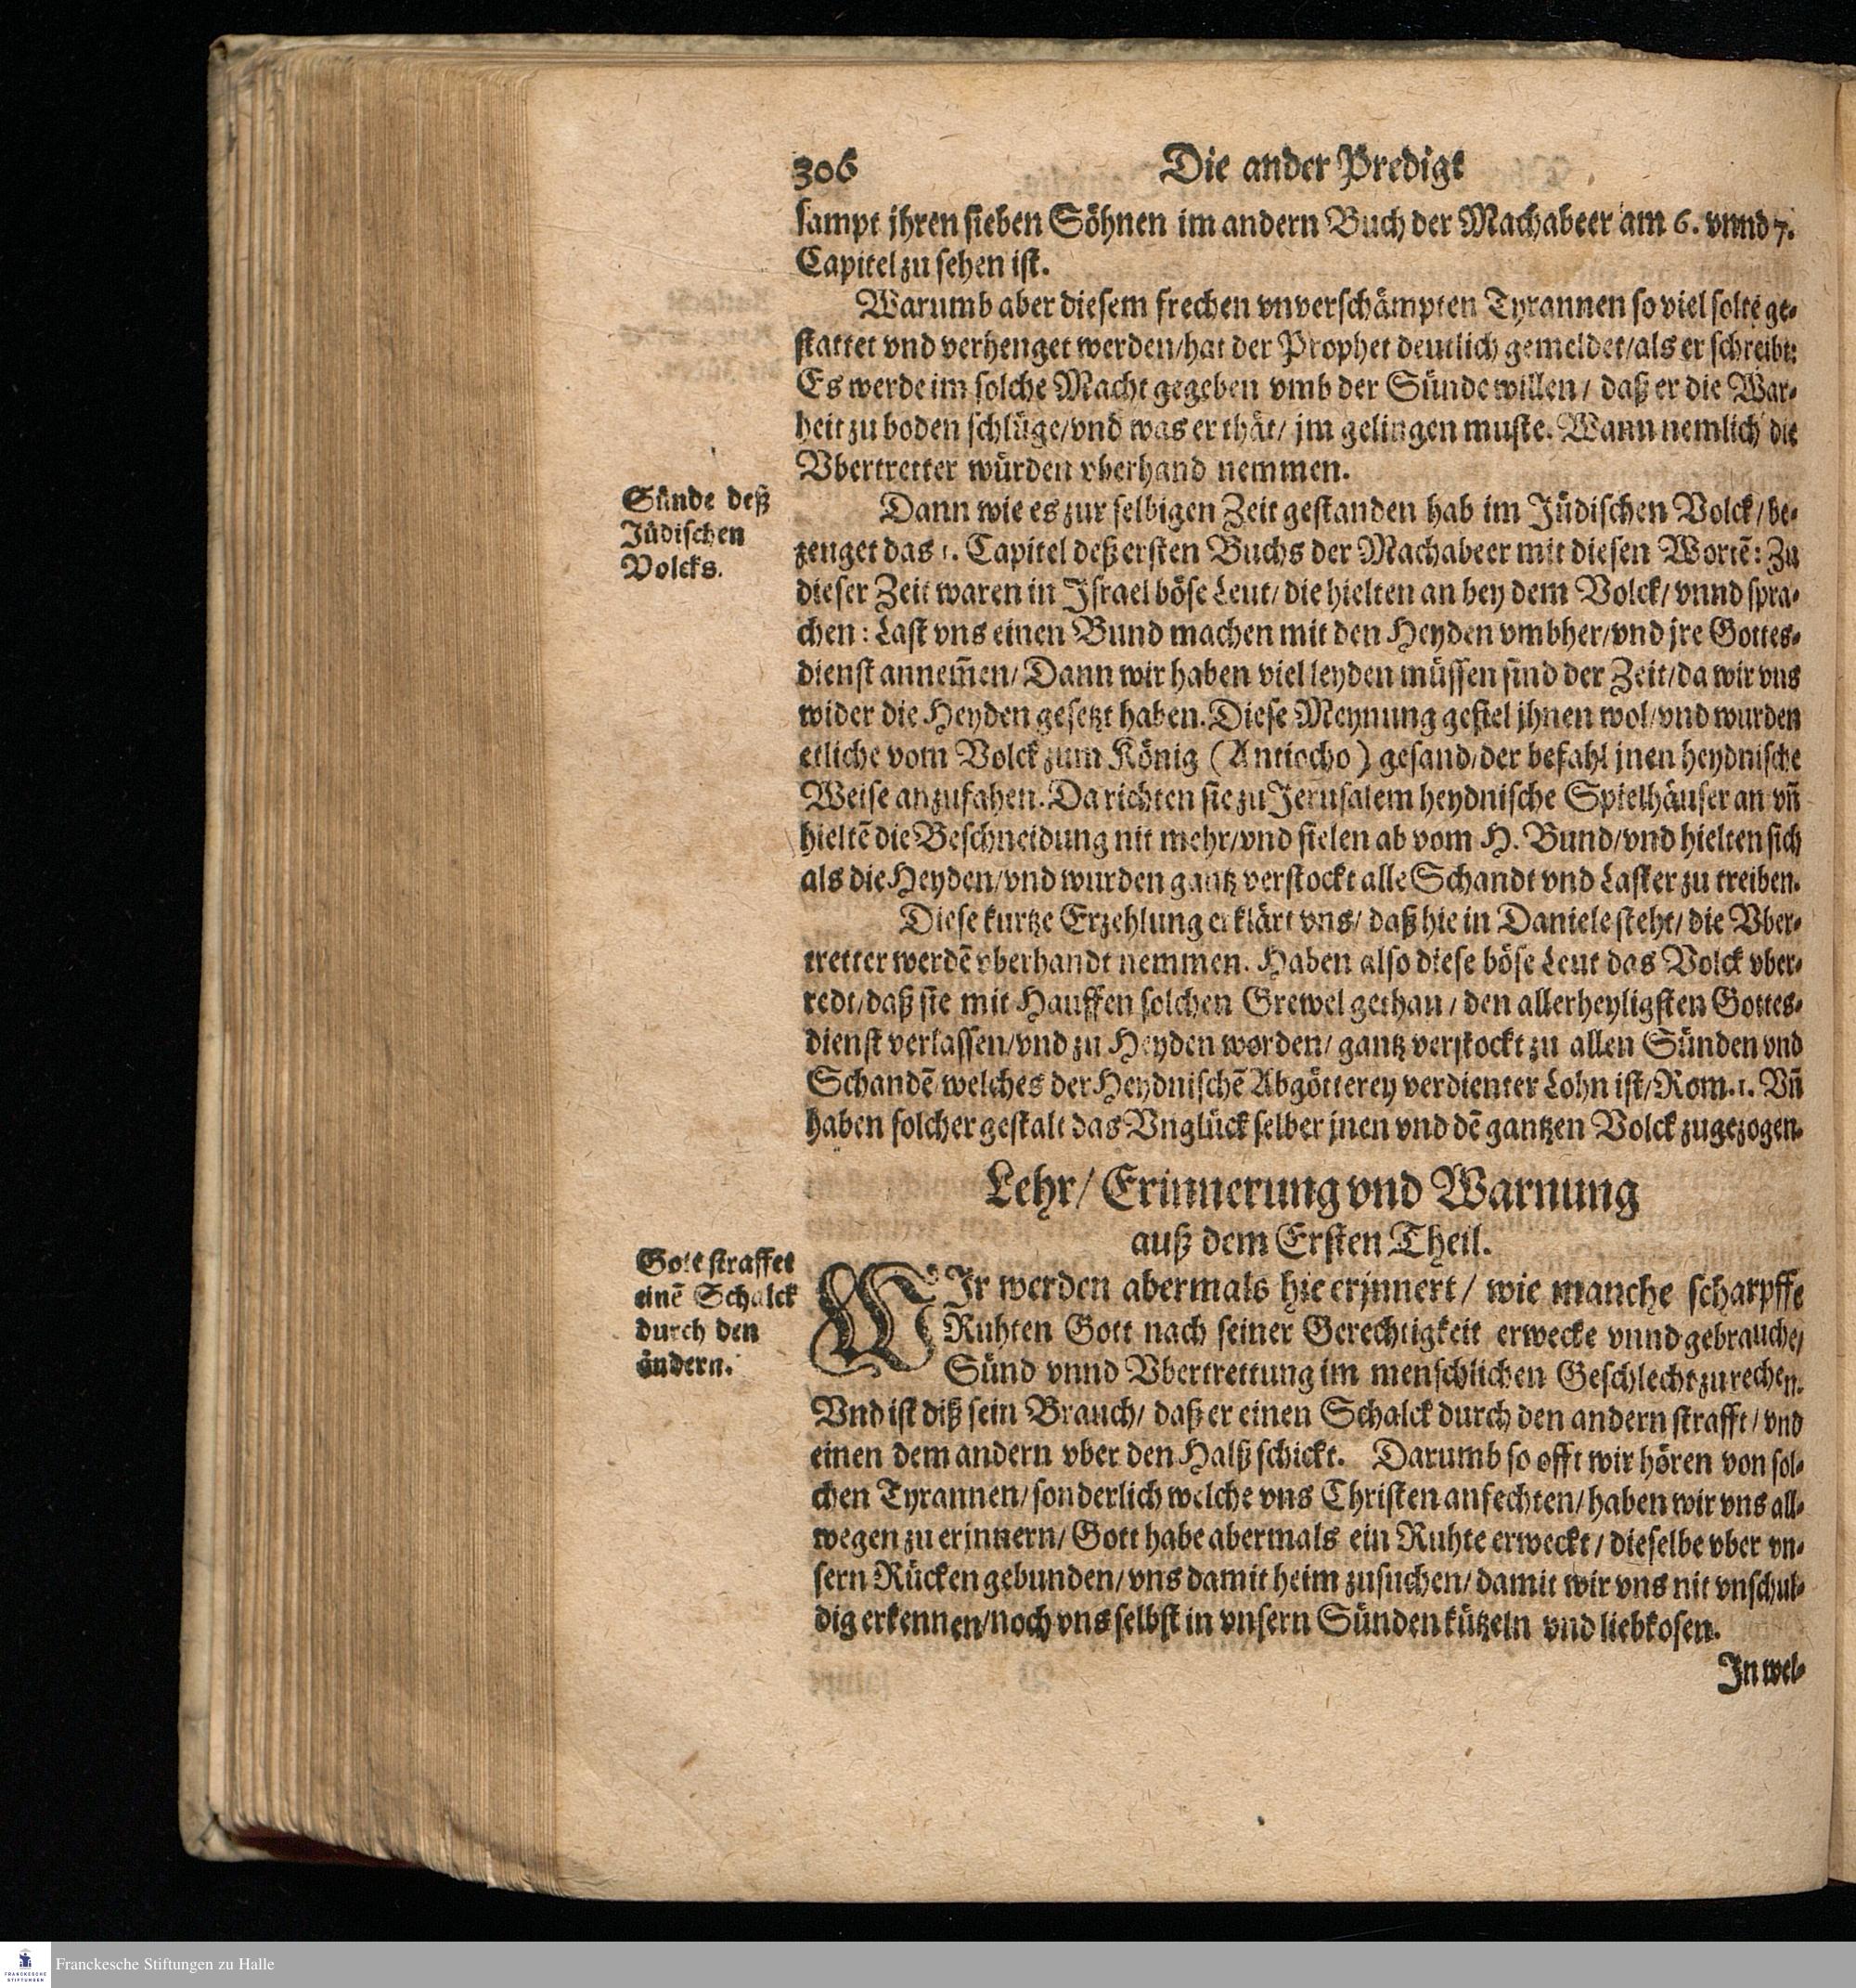 306 Die ander Predigt
sampt jhren sieben Söhnen im andern Buch der Machabeer am 6. vnnd 7.
Capitel zu sehen ist.
Warumb aber diesem frechen vnverschämpten Tyrannen so viel solte ge-
stattet vnd verhenget werden/hat der Prophet deutlich gemeldet/als er schreibt:
Es werde im solche Macht gegeben vmb der Sünde willen/ daß er die War-
heit zu boden schlüge/vnd was er thät/ jm gelingen muste. Wann nemlich die
Vbertretter würden vberhand nemmen.
Sünde deß
Jüdischen
Volcks.
Dann wie es zur selbigen Zeit gestanden hab im Jüdischen Volck/be-
zeuget das 1. Capitel deß ersten Buchs der Machabeer mit diesen Wortẽ: Zu
dieser Zeit waren in Israel böse Leut/ die hielten an bey dem Volck/ vnnd spra-
chen: Last vns einen Bund machen mit den Heyden vmbher/vnd jre Gottes-
dienst annem̃en/ Dann wir haben viel leyden müssen sind der Zeit/da wir vns
wider die Heyden gesetzt haben. Diese Meynung gefiel jhnen wol/vnd wurden
etliche vom Volck zum König (Antiocho) gesand/der befahl jnen heydnische
Weise anzufahen. Da richten sie zu Jerusalem heydnische Spielhäuser an vñ
hieltẽ die Beschneidung nit mehr/vnd fielen ab vom H. Bund/vnd hielten sich
als die Heyden/vnd wurden gantz verstockt alle Schandt vnd Laster zu treiben.
Diese kurtze Erzehlung erklärt vns/ daß hie in Daniele steht/ die Vber-
tretter werdẽ vberhandt nemmen. Haben also diese böse Leut das Volck vber-
redt/daß sie mit Hauffen solchen Grewel gethan/ den allerheyligsten Gottes-
dienst verlassen/vnd zu Heyden worden/ gantz verstockt zu allen Sünden vnd
Schandẽ welches der Heydnischẽ Abgötterey verdienter Lohn ist/Rom. 1. Vñ
haben solcher gestalt das Vnglück selber jnen vnd dẽ gantzen Volck zugezogen.
Lehr/ Erinnerung vnd Warnung
auß dem Ersten Theil.
Gott straffet
einẽ Schalck
durch den
andern.
WIr werden abermals hie erjnnert/ wie manche scharpffe
Ruhten Gott nach seiner Gerechtigkeit erwecke vnnd gebrauche/
Sünd vnnd Vbertrettung im menschlichen Geschlecht zu rechen.
Vnd ist diß sein Brauch/ daß er einen Schalck durch den andern strafft/ vnd
einen dem andern vber den Halß schickt. Darumb so offt wir hören von sol-
chen Tyrannen/ sonderlich welche vns Christen anfechten/ haben wir vns all-
wegen zu erjnnern/ Gott habe abermals ein Ruhte erweckt/ dieselbe vber vn-
sern Rücken gebunden/ vns damit heim zusuchen/ damit wir vns nit vnschul-
dig erkennen/noch vns selbst in vnsern Sünden kützeln vnd liebkosen.
In wel-
FRANCKESCHE
STIFTUNGEN
Franckesche Stiftungen zu Halle